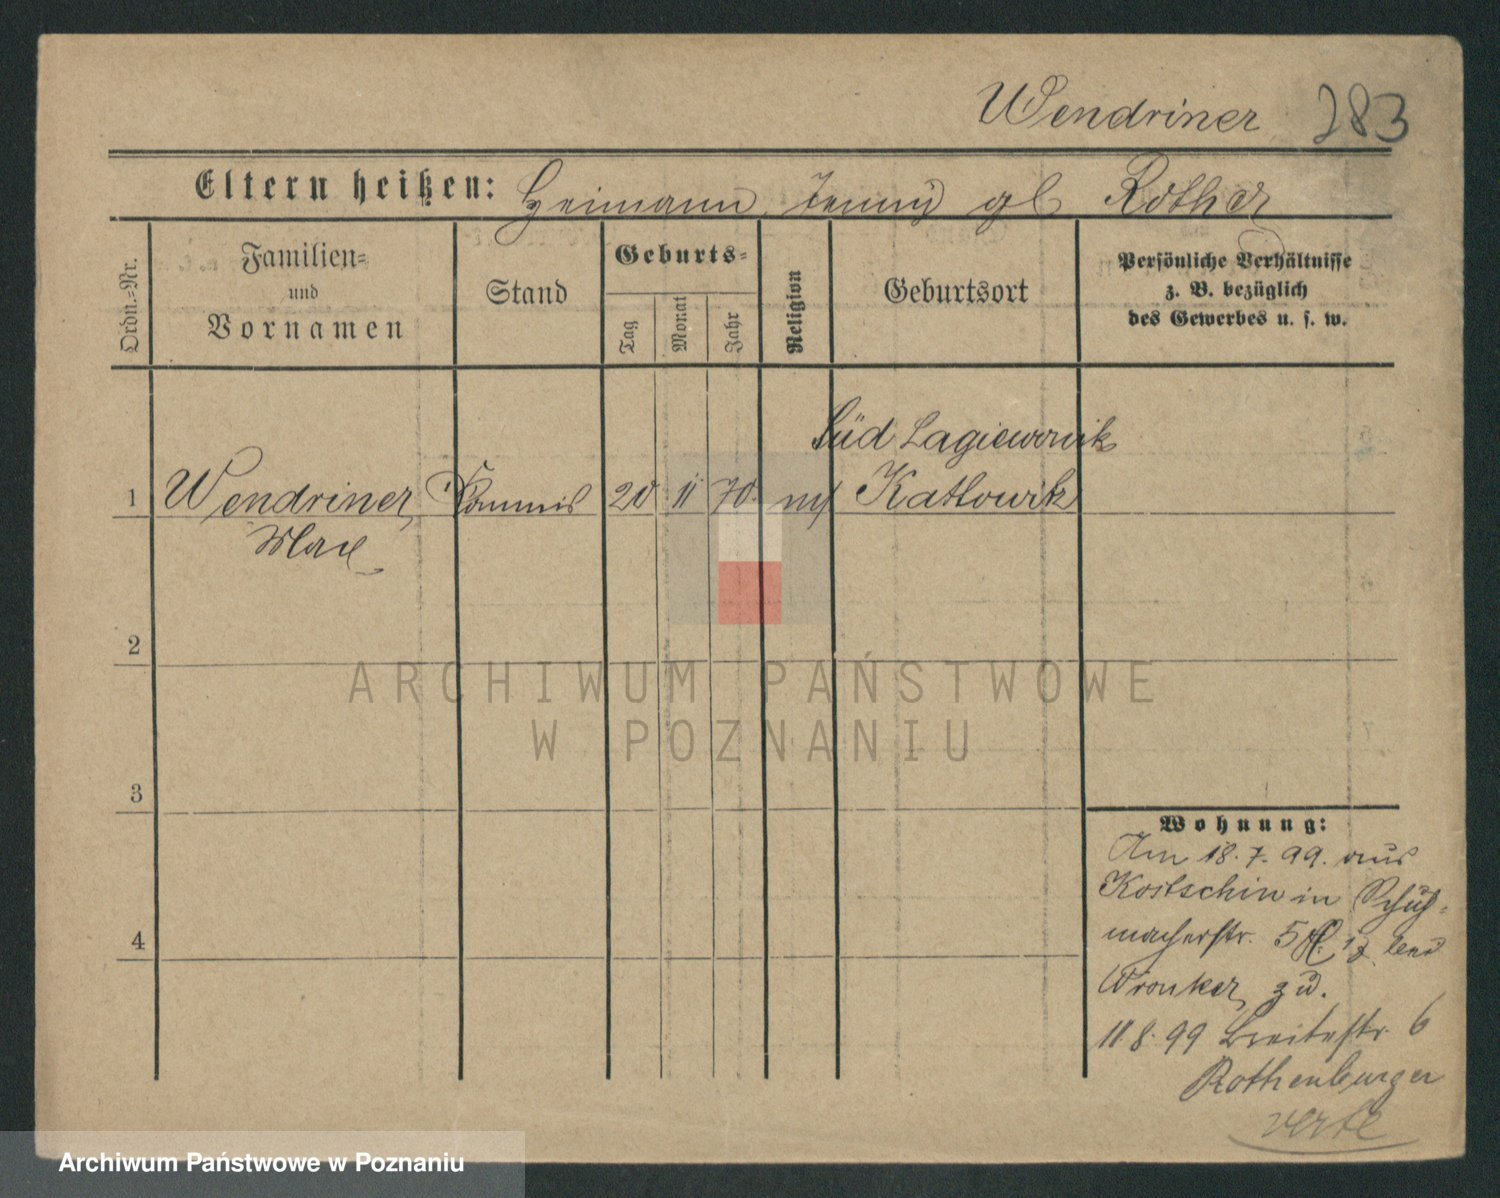 Wendriner 283
Eltern heißen: Heimann, Jenny gb Rother
Ordn.-Nr.
Familien-
und
Vornamen
Stand
Geburts-
Tag
Monat
Jahr
Religion
Geburtsort
Persönliche Verhältnisse
z. B. bezüglich
des Gewerbes u. s. w.
Süd Lagiewnik
1 Wendriner, Commis 20 11 70. Kattowitz
Max
2
3
4
Wohnung:
Am 18. 7. 99. aus
Kostschin in Schuh-
macherstr. 5
Wronker zu.
11 8. 99 Breitestr. 6
Rothenburger
verte
ARCHIWUM PAŃSTWOWE
W POZNANIU
Archiwum Państwowe w Poznaniu